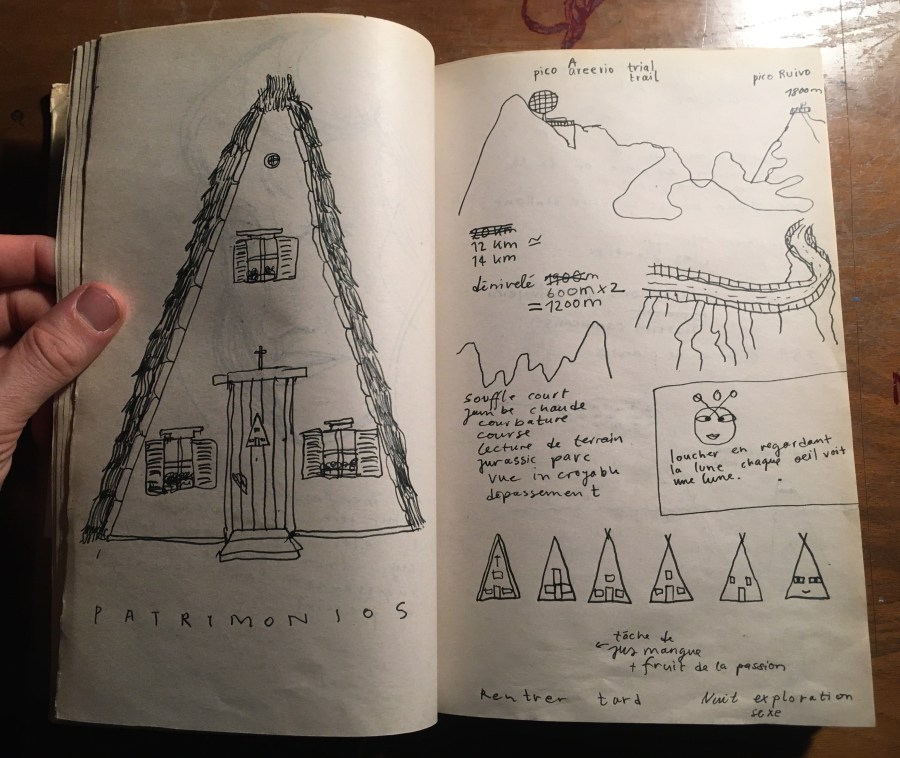 PATRIMONIOS
pico Areerio trial
trail
pico Ruivo
1800m
20 km
12 km ≃
14 km
dénivelé 1900m
600m x 2
= 1200m
souffle court
jambe chaude
courbature
course
lecture de terrain
jurassic parc
vue incroyable
dépassement
loucher en regardant
la lune chaque oeil voit
une lune.
← tâche de
jus mangue
+ fruit de la passion
Rentrer tard
Nuit exploration
sexe